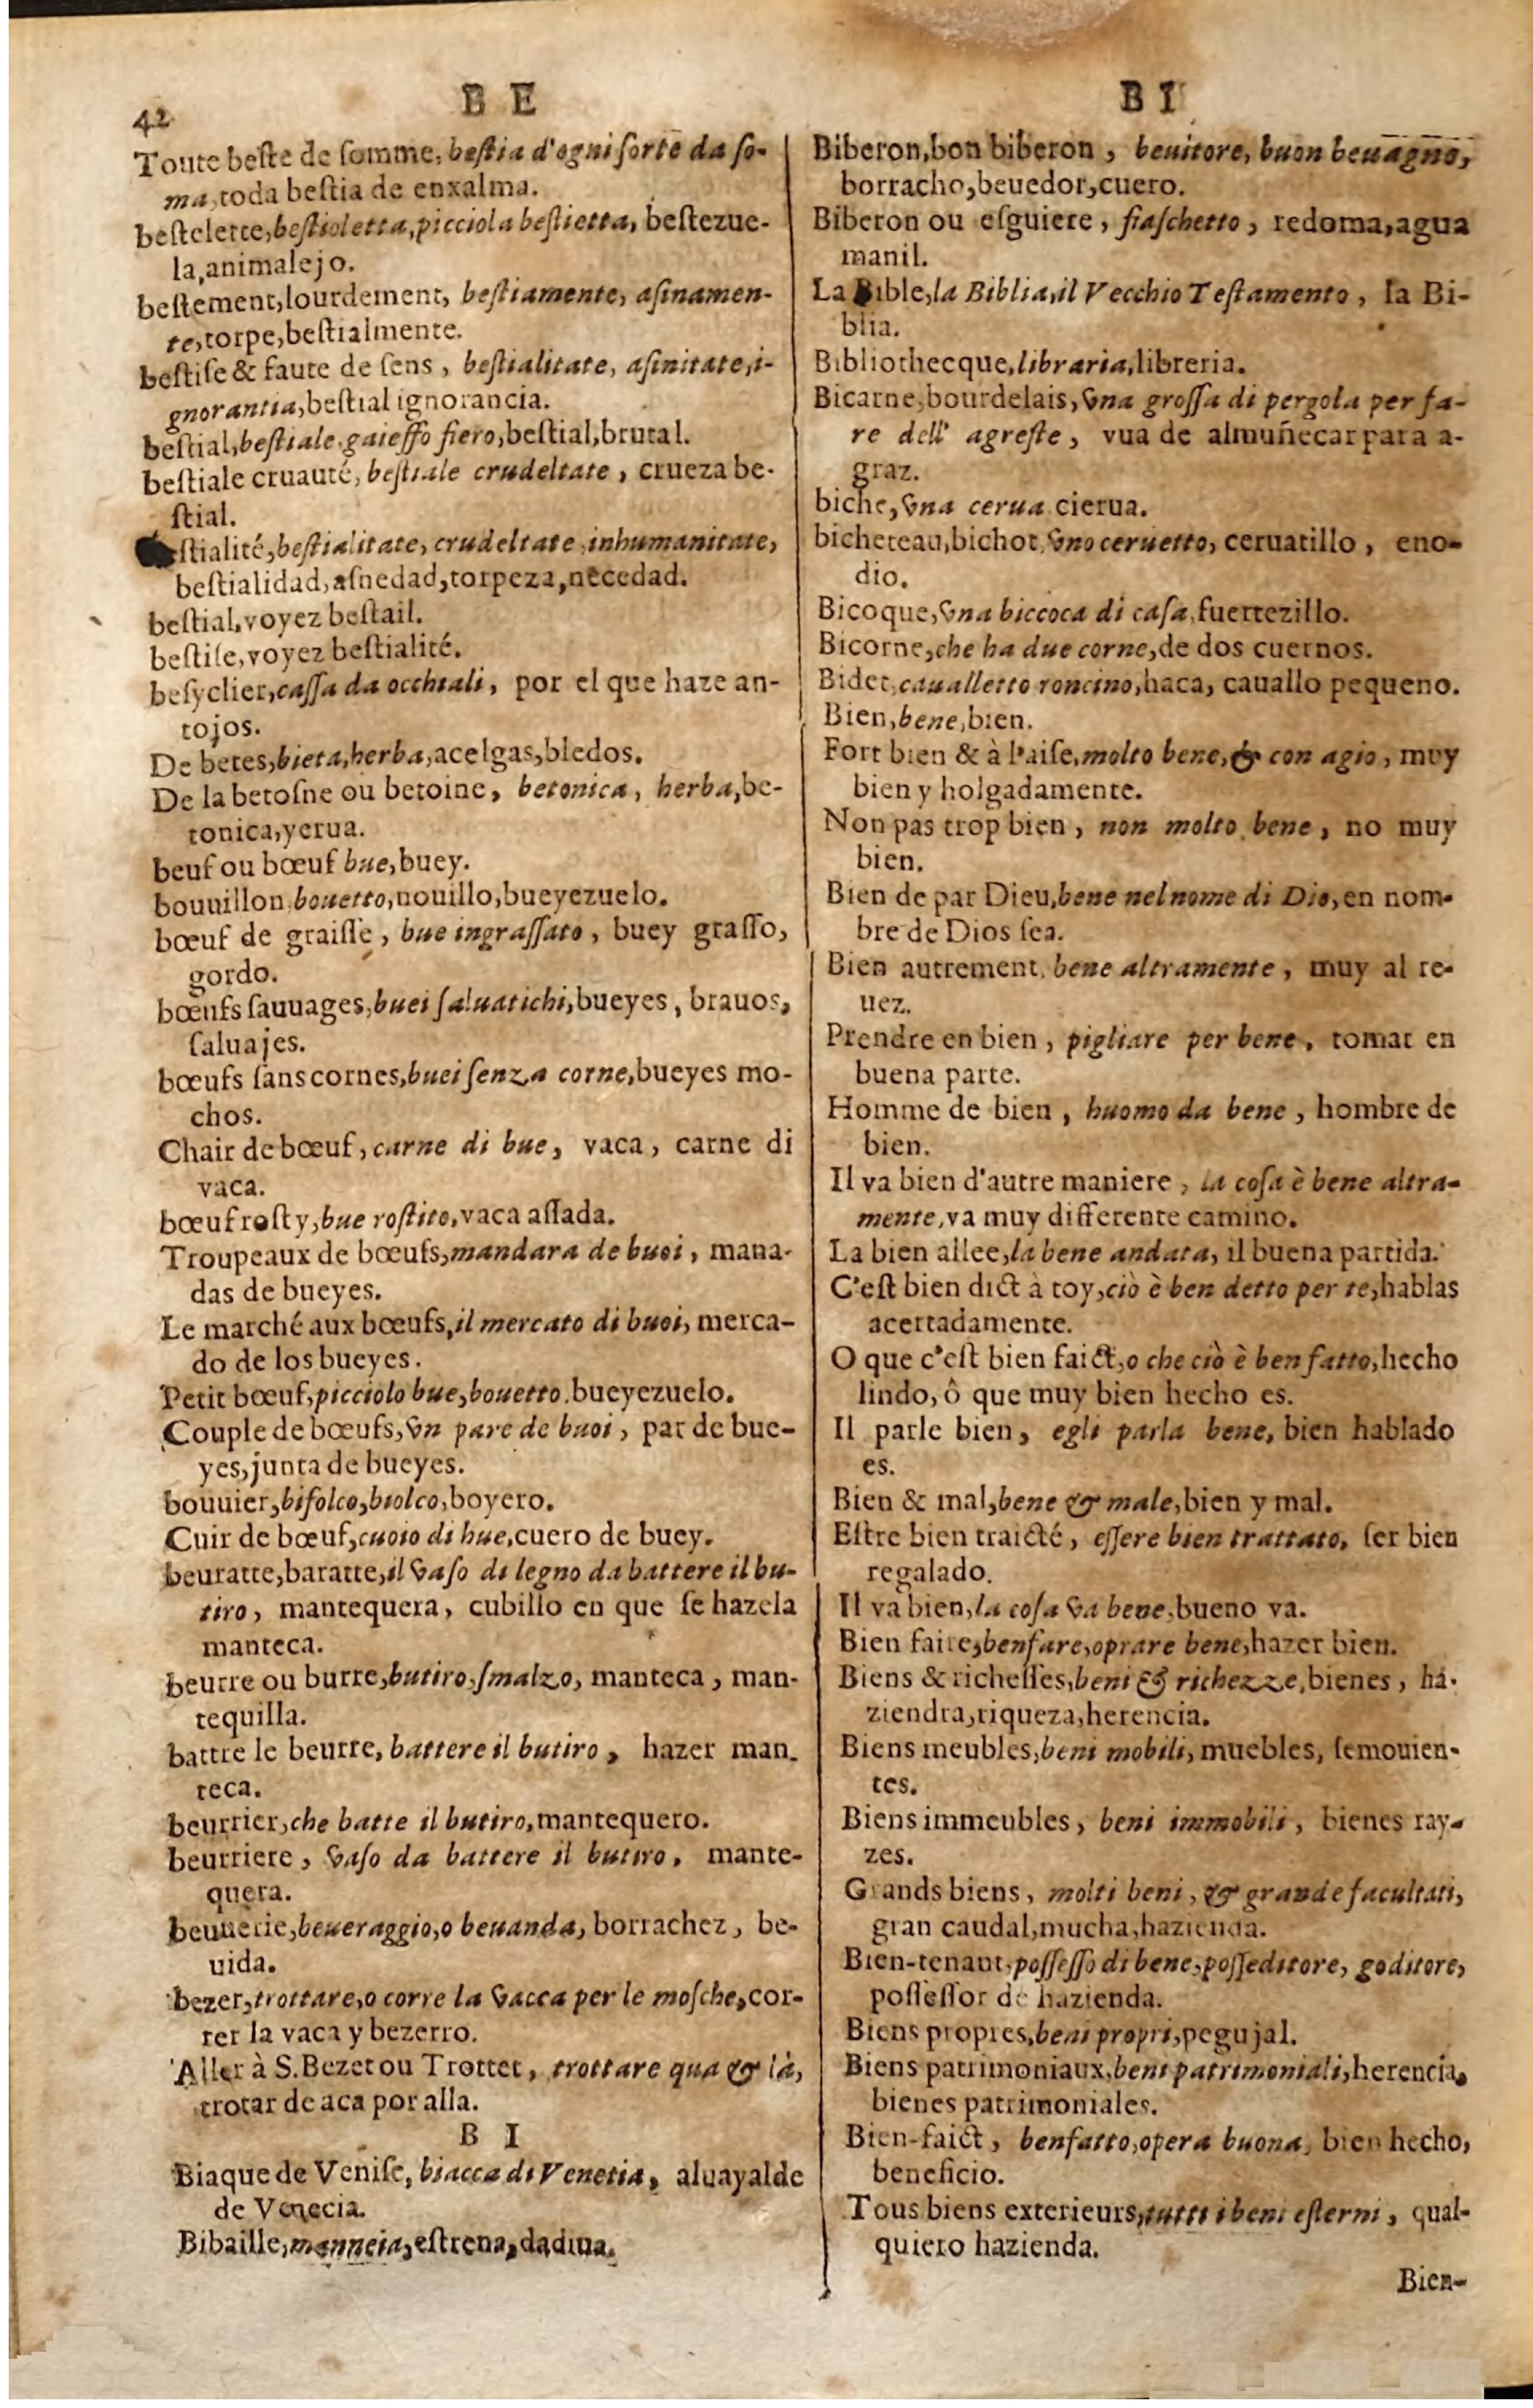 42
B E
Toute beſte de ſomme, beſtia d'ogni ſorte da ſo-
ma, toda beſtia de enxalma.
beſtelette, beſtioletta, picciola beſtietta, beſtezue-
la, animalejo.
beſtement, lourdement, beſtiamente, aſinamen-
te, torpe, beſtialmente.
beſtiſe & faute de ſens, beſtialitate, aſinitate, i-
gnorantia, beſtial ignorancia.
beſtial, beſtiale, gaieſſo fiero, beſtial, brutal.
beſtiale cruauté, beſtiale crudeltate, crueza be-
ſtial.
ſtialité, beſtialitate, crudeltate, inhumanitate,
beſtialidad, aſnedad, torpeza, necedad.
beſtial, voyez beſtail.
beſtiſe, voyez beſtialité.
beſyclier, caſſa da occhiali, por el que haze an-
tojos.
De betes, bieta, herba, acelgas, bledos.
De la betoſne ou betoine, betonica, herba, be-
tonica, yerua.
beuf ou bœuf bue, buey.
bouuillon, bouetto, nouillo, bueyezuelo.
bœuf de graiſſe, bue ingraſſato, buey graſſo,
gordo.
bœufs ſauuages, buei ſaluatichi, bueyes, brauos,
ſaluajes.
bœufs ſans cornes, buei ſenza corne, bueyes mo-
chos.
Chair de bœuf, carne di bue, vaca, carne di
vaca.
bœuf roſty, bue roſtito, vaca aſſada.
Troupeaux de bœufs, mandara de buoi, mana-
das de bueyes.
Le marché aux bœufs, il mercato di buoi, merca-
do de los bueyes.
Petit bœuf, picciolo bue, bouetto, bueyezuelo.
Couple de bœufs, vn pare de buoi, par de bue-
yes, junta de bueyes.
bouuier, bifolco, biolco, boyero.
Cuir de bœuf, cuoio di hue, cuero de buey.
beuratte, baratte, il vaſo di legno da battere il bu-
tiro, mantequera, cubillo en que ſe hazela
manteca.
beurre ou burre, butiro, ſmalzo, manteca, man-
tequilla.
battre le beurre, battere il butiro, hazer man-
teca.
beurrier, che batte il butiro, mantequero.
beurriere, vaſo da battere il butiro, mante-
quera.
beuuerie, beueraggio, o beuanda, borrachez, be-
uida.
bezer, trottare, o corre la vacca per le moſche, cor-
rer la vaca y bezerro.
Aller à S. Bezet ou Trottet, trottare qua & là,
trotar de aca por alla.
B I
Biaque de Veniſe, biacca di Venetia, aluayalde
de Venecia.
Bibaille, manneia, eſtrena, dadiua.
B I
Biberon, bon biberon, beuitore, buon beuagno,
borracho, beuedor, cuero.
Biberon ou eſguiere, fiaſchetto, redoma, agua
manil.
La Bible, la Biblia, il Vecchio Teſtamento, la Bi-
blia.
Bibliothecque, libraria, libreria.
Bicarne, bourdelais, vna groſſa di pergola per fa-
re dell' agreſte, vua de almuñecar para a-
graz.
biche, vna cerua cierua.
bicheteau, bichot, vno ceruetto, ceruatillo, eno-
dio.
Bicoque, vna biccoca di caſa, fuertezillo.
Bicorne, che ha due corne, de dos cuernos.
Bidet, caualletto roncino, haca, cauallo pequeno.
Bien, bene, bien.
Fort bien & à l'aiſe, molto bene, & con agio, muy
bien y holgadamente.
Non pas trop bien, non molto bene, no muy
bien.
Bien de par Dieu, bene nel nome di Dio, en nom-
bre de Dios ſea.
Bien autrement, bene altramente, muy al re-
uez.
Prendre en bien, pigliare per bene, tomar en
buena parte.
Homme de bien, huomo da bene, hombre de
bien.
Il va bien d'autre maniere, la coſa è bene altra-
mente, va muy differente camino.
La bien allee, la bene andata, il buena partida.
C'eſt bien dict à toy, ciò è ben detto per te, hablas
acertadamente.
O que c'eſt bien faict, o che ciò è ben fatto, hecho
lindo, ô que muy bien hecho es.
Il parle bien, egli parla bene, bien hablado
es.
Bien & mal, bene & male, bien y mal.
Eſtre bien traicté, eſſere bien trattato, ſer bien
regalado.
Il va bien, la coſa va bene, bueno va.
Bien faire, benfare, oprare bene, hazer bien.
Biens & richeſſes, beni & richezze, bienes, ha-
ziendra, riqueza, herencia.
Biens meubles, beni mobili, muebles, ſemouien-
tes.
Biens immeubles, beni immobili, bienes ray-
zes.
Grands biens, molti beni, & grande facultati,
gran caudal, mucha, hazienda.
Bien-tenant, poſſeſſo di bene, poſſeditore, goditore,
poſſeſſor de hazienda.
Biens propres, beni propri, pegujal.
Biens patrimoniaux, beni patrimoniali, herencia,
bienes patrimoniales.
Bien-faict, benfatto, opera buona, bien hecho,
beneficio.
Tous biens exterieurs, tutti i beni eſterni, qual-
quiero hazienda.
Bien-